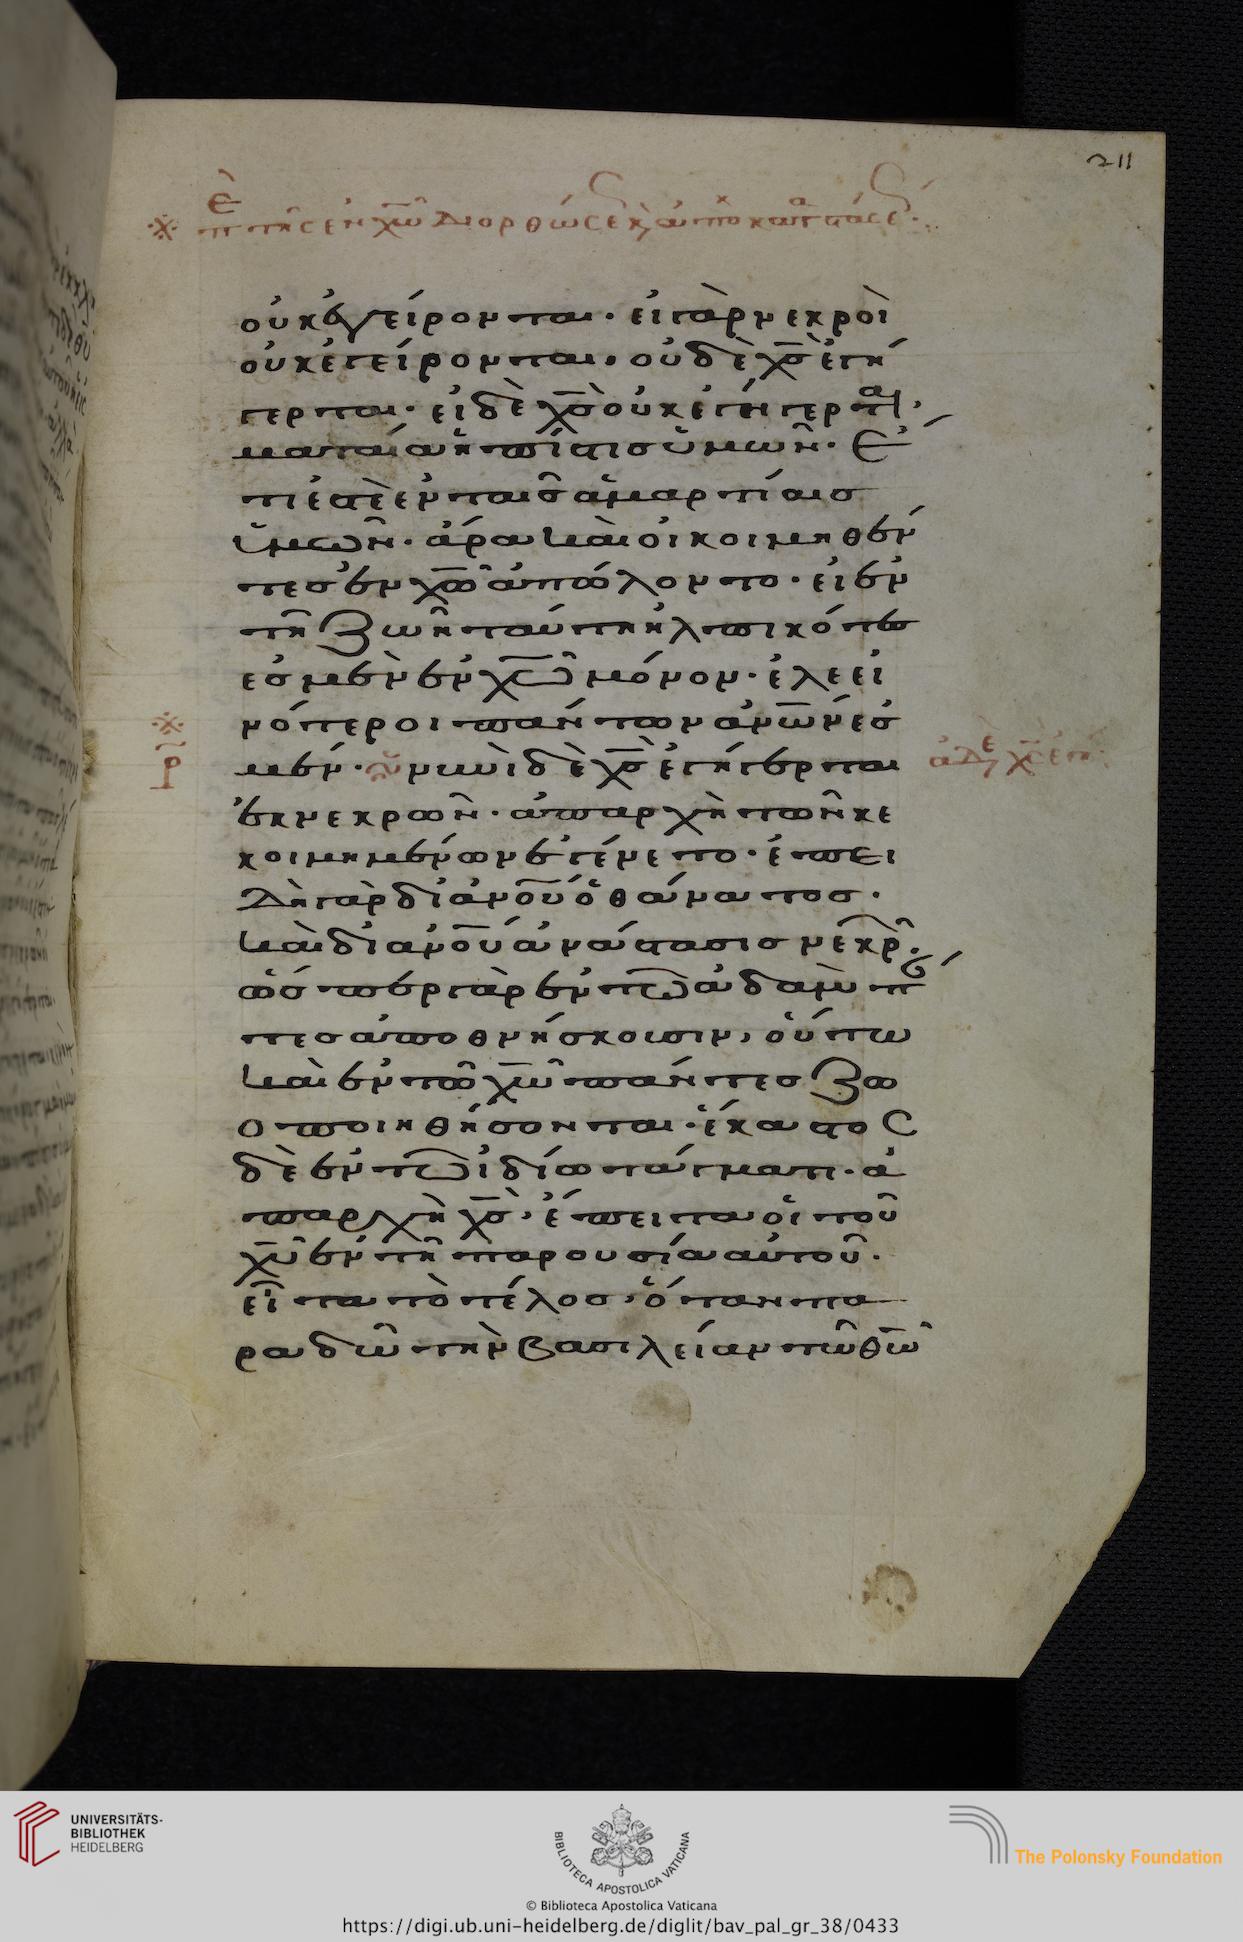 211
οὐκ ἐγείρονται· εἰ γὰρ νεκροὶ
οὐκ ἐγείρονται, οὐδὲ χ̅ς̅ ἐγή
γερται· εἰ δὲ χ̅ς̅ οὐκ ἐγήγερτ(αι),
ματαία ἡ πίστις ὑμῶν· ἔ
τι ἐστὲ ἐν ταῖς ἁμαρτίαις
ὑμῶν· ἄρα καὶ οἱ κοιμηθέν
τες ἐν χ̅ω̅ ἀπώλοντο· εἰ ἐν
τῆ ζωῆ ταύτη ἠλπικότες
ἐσμὲν ἐν χ̅ω̅ μόνον· ἐλεει
νότεροι πάντων ἀν̅ω̅ν ἐσ
μέν· νυνὶ δὲ χ̅ς̅ ἐγήγερται
ἐκ νεκρῶν· ἀπαρχὴ τῶν κε
κοιμημένων ἐγένετο· ἐπει
δὴ γὰρ δι ἀν̅ο̅υ ὁ θάνατος·
καὶ δι ἀν̅ο̅υ ἀνάστασις νεκρ·
ὥσπερ γὰρ ἐν τῶ ἀδὰμ π
τες ἀποθνήσκουσιν, οὕτω
καὶ ἐν τῶ χ̅ω̅ πάντες ζω
οποιηθήσονται· ἕκαστος
δὲ ἐν τῶ ἰδίω τάγματι· ἀ
παρχὴ χ̅ς̅, ἔπειτα οἱ τοῦ
χ̅υ̅ ἐν τῆ παρουσία αὐτοῦ·
εἶτα τὸ τέλος, ὅταν πα
ραδῶ τὴν βασιλείαν τῶ θ̅ω̅
UNIVERSITÄTS-
BIBLIOTHEK
HEIDELBERG
BIBLIOTECA APOSTOLICA VATICANA
The Polonsky Foundation
© Biblioteca Apostolica Vaticana
https://digi.ub.uni-heidelberg.de/diglit/bav_pal_gr_38/0433